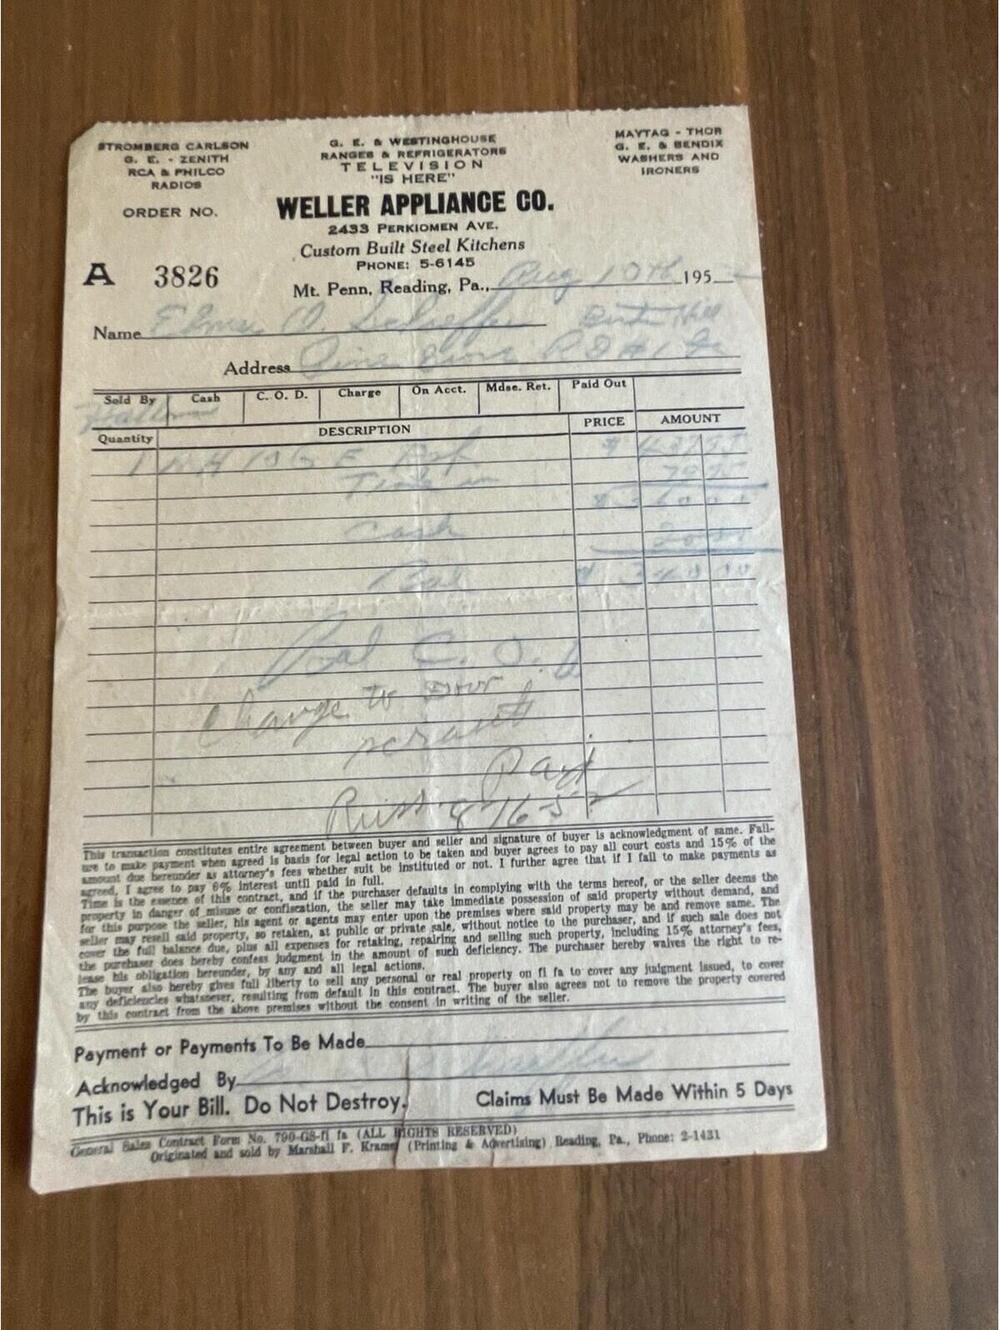 STROMBERG CARLSON
G. E. - ZENITH
RCA & PHILCO
RADIOS
G. E. & WESTINGHOUSE
RANGES & REFRIGERATORS
TELEVISION
"IS HERE"
MAYTAG - THOR
G. E. & BENDIX
WASHERS AND
IRONERS
ORDER NO.
WELLER APPLIANCE CO.
2433 PERKIOMEN AVE.
Custom Built Steel Kitchens
PHONE: 5-6145
A 3826
Mt. Penn, Reading, Pa., Aug 195
Name Elmer
Address
Sold By Cash C. O. D. Charge On Acct. Mdse. Ret. Paid Out
Quantity DESCRIPTION PRICE AMOUNT
1 Ref $
Trade in
$ 360 00
Cash 20 00
Bal $ 340 00
Bal C. O.
Change to
Paid
Russ 8/16 52
This transaction constitutes entire agreement between buyer and seller and signature of buyer is acknowledgment of same. Fail-
ure to make payment when agreed is basis for legal action to be taken and buyer agrees to pay all court costs and 15% of the
amount due hereunder as attorney's fees whether suit be instituted or not. I further agree that if I fail to make payments as
agreed, I agree to pay 6% interest until paid in full.
Time is the essence of this contract, and if the purchaser defaults in complying with the terms hereof, or the seller deems the
property in danger of misuse or confiscation, the seller may take immediate possession of said property without demand, and
for this purpose the seller, his agent or agents may enter upon the premises where said property may be and remove same. The
seller may resell said property, so retaken, at public or private sale, without notice to the purchaser, and if such sale does not
cover the full balance due, plus all expenses for retaking, repairing and selling such property, including 15% attorney's fees,
the purchaser does hereby confess judgment in the amount of such deficiency. The purchaser hereby waives the right to re-
lease his obligation hereunder, by any and all legal actions.
The buyer also hereby gives full liberty to sell any personal or real property on fi fa to cover any judgment issued, to cover
any deficiencies whatsoever, resulting from default in this contract. The buyer also agrees not to remove the property covered
by this contract from the above premises without the consent in writing of the seller.
Payment or Payments To Be Made
Acknowledged By
This is Your Bill. Do Not Destroy. Claims Must Be Made Within 5 Days
General Sales Contract Form No. 790-GS-fi fa (ALL RIGHTS RESERVED)
Originated and sold by Marshall F. Kramer (Printing & Advertising) Reading, Pa., Phone: 2-1431